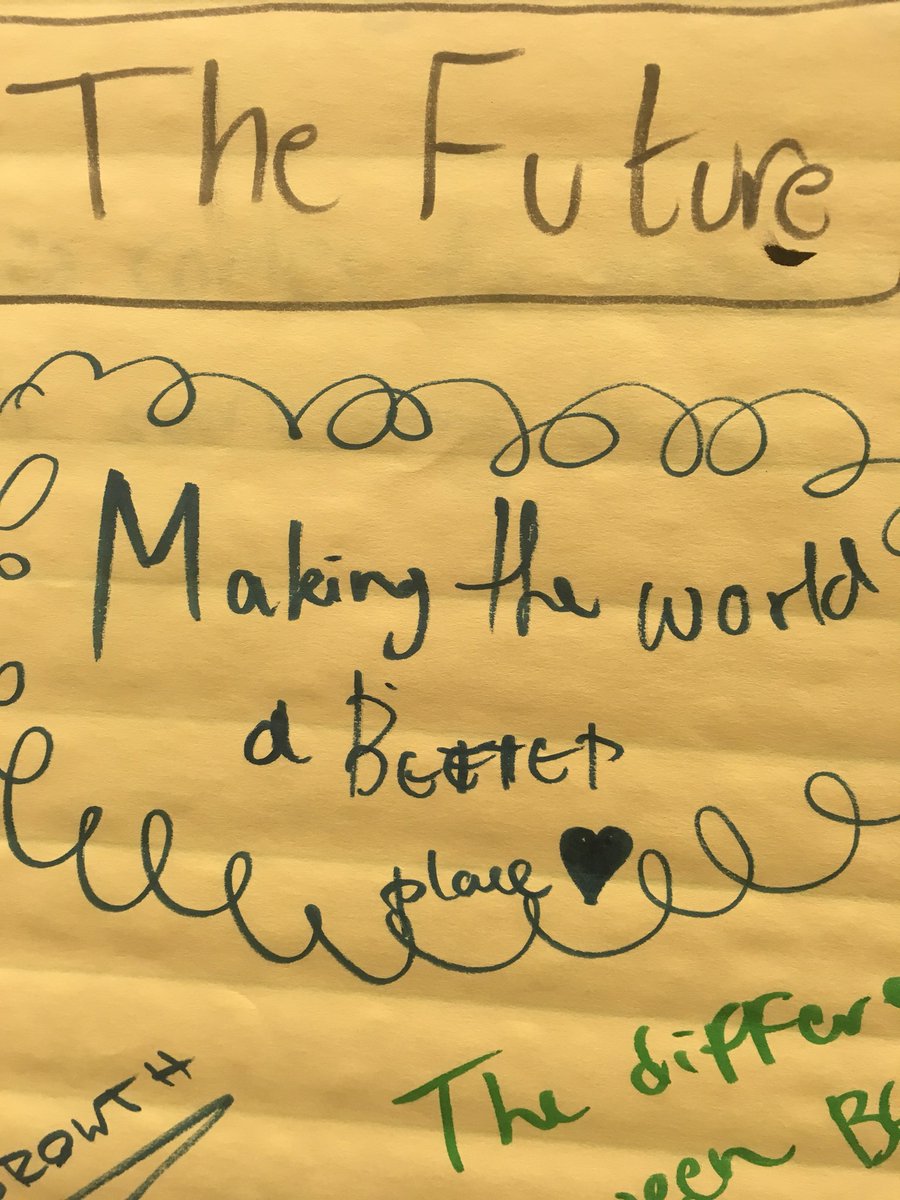 The Future
Making the world
a BETTER
place
GROWTH
The differ
een Be